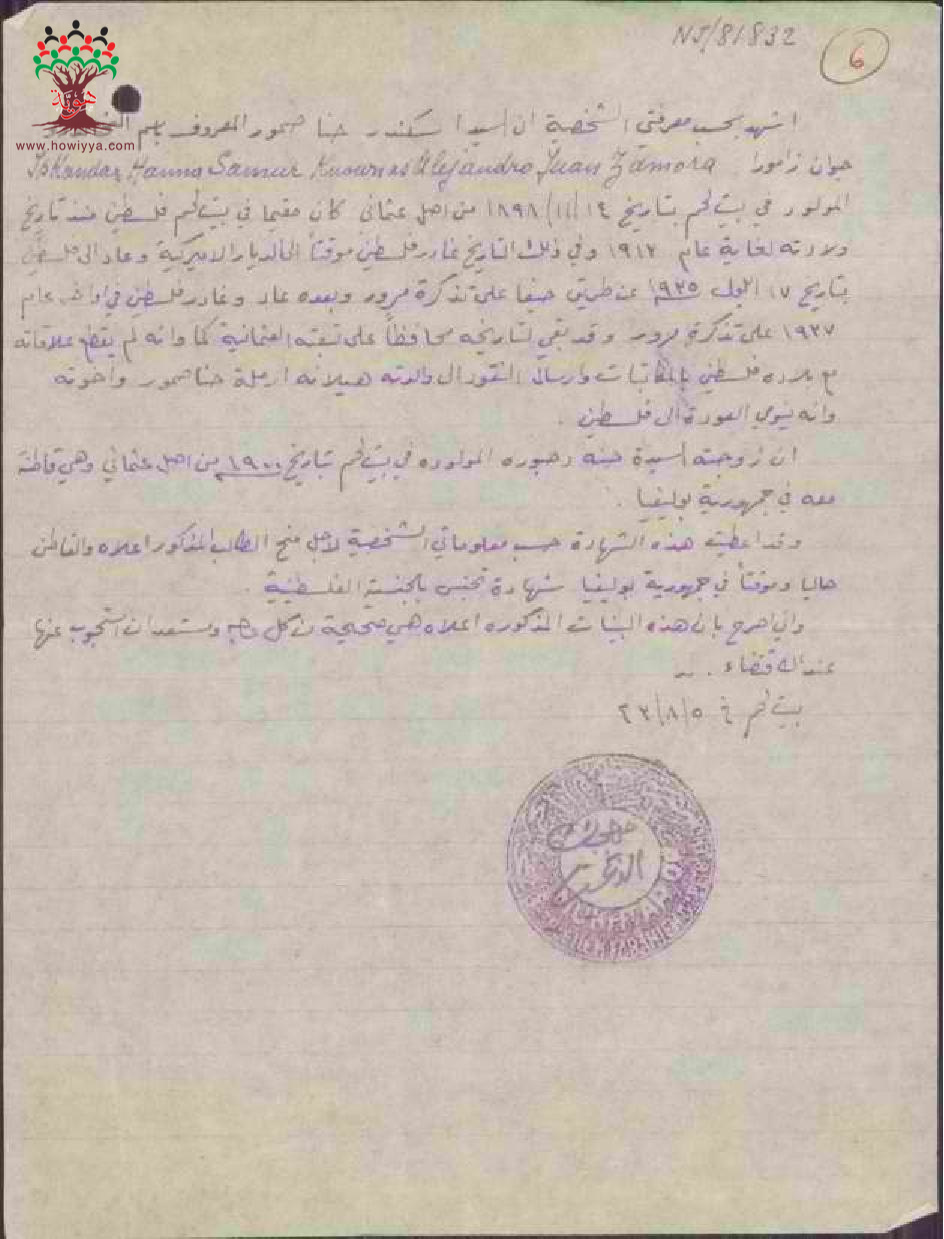 NJ/81832
6
هوية
www.howiyya.com
اشهد بحسب معرفتي الشخصية ان السيد اسكندر حنا صمور المعروف باسم
جوان زامورا Iskandar Hanna Samur Knownas Alejandro Juan Zamora
المولود في بيت لحم بتاريخ ١٤/١١/١٨٩٨ من اصل عثماني كان مقيما في بيت لحم فلسطين منذ تاريخ
ولادته لغاية عام ١٩١٢ وفي ذلك التاريخ غادر فلسطين موقتاً الى الديار الاميركية وعاد الى فلسطين
بتاريخ ١٧ ايلول ١٩٢٥ عن طريق حيفا على تذكرة مرور وبعده عاد وغادر فلسطين في اواخر عام
١٩٢٧ على تذكرة مرور وقد بقي لتاريخه محافظاً على تبعته العثمانية كما وانه لم يقطع علاقاته
مع بلاده فلسطين بالمكاتبات وارسال النقود الى والدته هيلانه ارملة حنا صمور وأخوته
وانه ينوي العودة الى فلسطين .
ان زوجته السيدة حنه دحبوره المولوده في بيت لحم بتاريخ ١٩٠٠ من اصل عثماني وهي قاطنة
معه في جمهورية بوليفيا .
وقد اعطيت هذه الشهادة حسب معلوماتي الشخصية لاجل منح الطالب المذكور اعلاه والقاطن
حاليا وموقتاً في جمهورية بوليفيا شهادة تجنس بالجنسية الفلسطينية .
واني اصرح بان هذه البينات المذكوره اعلاه هي صحيحة من كل وجه ومستعد ان استجوب عنها
عند الاقتضاء .
بيت لحم في ٥/٨/٣٢
مختار